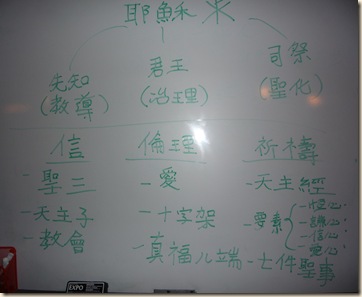 耶穌
先知 君王 司祭
(教導) (治理) (聖化)
信 倫理 祈禱
-聖三 -愛 -天主經
-天主子 -十字架 -要素
-恆心
-謙心
-信心
-愛心
-教會 -真福八端 -七件聖事
EXPO